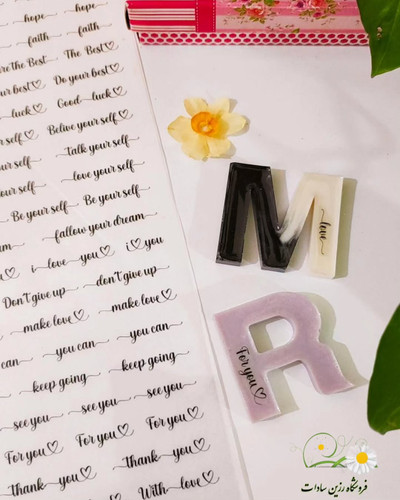 hope hope
faith faith
are the Best The Best
your best Do your best
luck Good luck
your self Belive your self
self Talk your self
your self love your self
Be your self Be your self
fallow your dream
you i love you i you
Don't give up don't give up
make love make love
can you can you can
keep going keep going
see you see you see you
For you For you For you
thank you thank you
With love
love
For you
فروشگاه رزین سادات